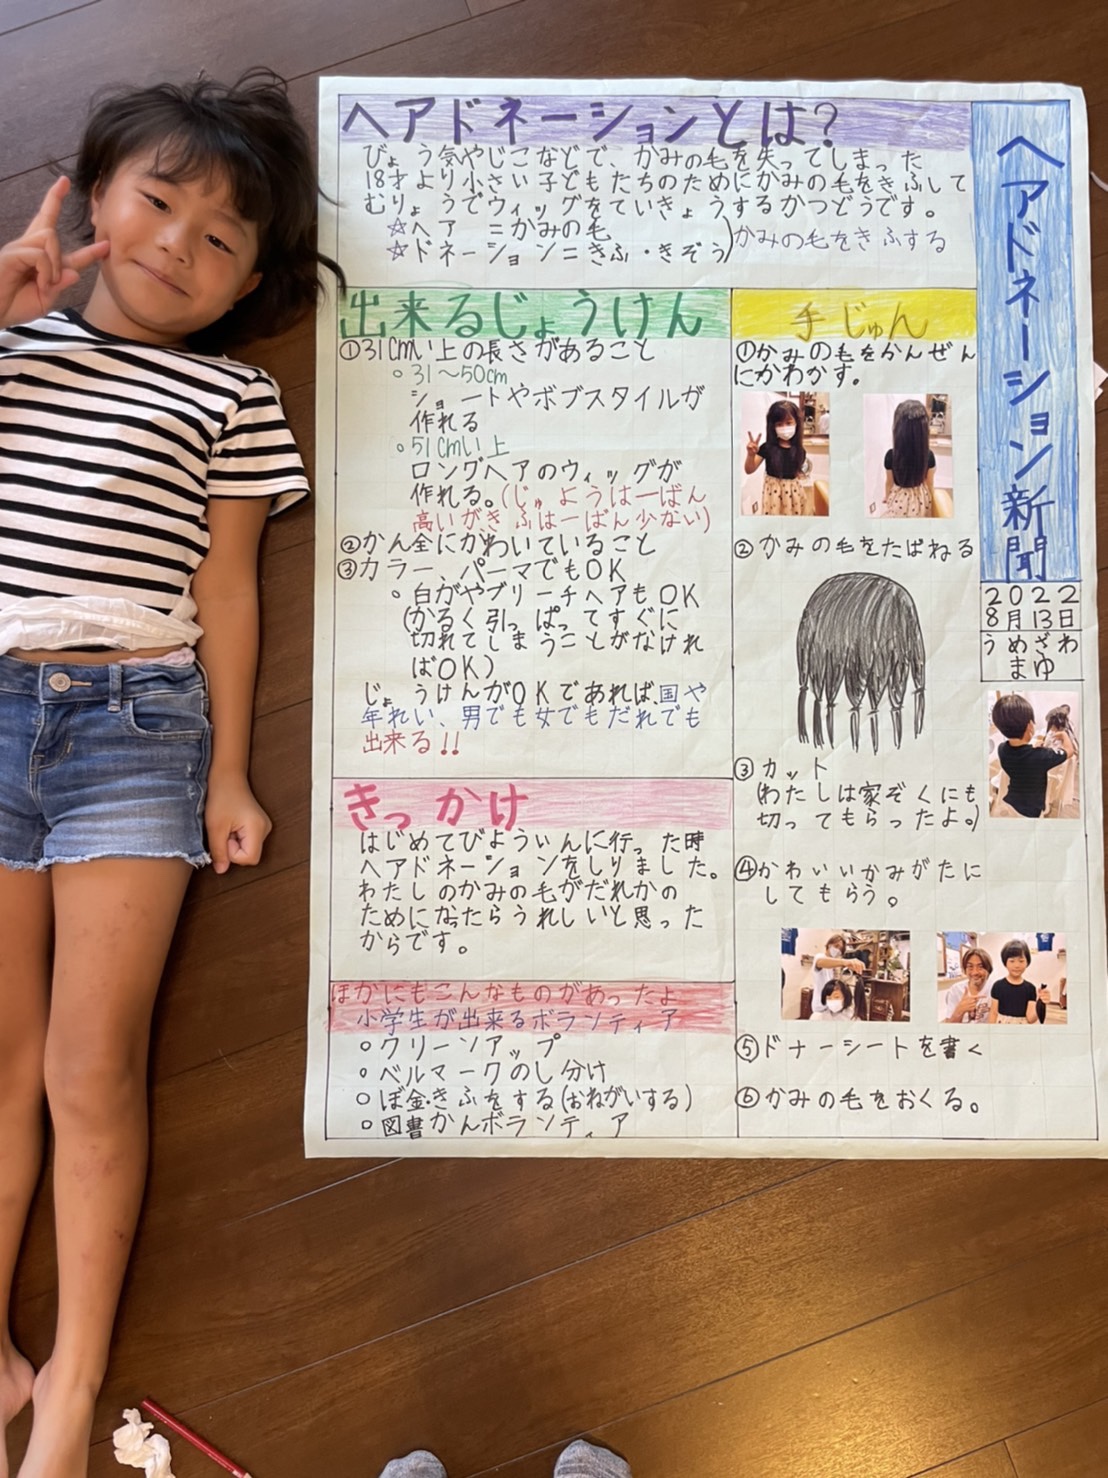 ヘアドネーション新聞
2022
8月13日
うめざわ
まゆ
ヘアドネーションとは?
びょう気やじこなどで、かみの毛を失ってしまった
18才より小さい子どもたちのためにかみの毛をきふして
むりょうでウィッグをていきょうするかつどうです。
☆ヘア =かみの毛
☆ドネーション=きふ・きぞう)かみの毛をきふする
出来るじょうけん
①31cmい上の長さがあること
○31～50cm
ショートやボブスタイルが
作れる
○51cmい上
ロングヘアのウィッグが
作れる。(じゅようは一ばん
高いがきふは一ばん少ない)
②かん全にかわいていること
③カラー、パーマでもOK
○白がやブリーチヘアもOK
(かるく引っぱってすぐに
切れてしまうことがなけれ
ばOK)
じょうけんがOKであれば、国や
年れい、男でも女でもだれでも
出来る!!
きっかけ
はじめてびよういんに行った時
ヘアドネーションをしりました。
わたしのかみの毛がだれかの
ためになったらうれしいと思った
からです。
ほかにもこんなものがあったよ
小学生が出来るボランティア
○クリーンアップ
○ベルマークのし分け
○ぼ金・きふをする(おねがいする)
○図書かんボランティア
手じゅん
①かみの毛をかんぜん
にかわかす。
②かみの毛をたばねる
③カット
(わたしは家ぞくにも
切ってもらったよ。)
④かわいいかみがたに
してもらう。
⑤ドナーシートを書く
⑥かみの毛をおくる。